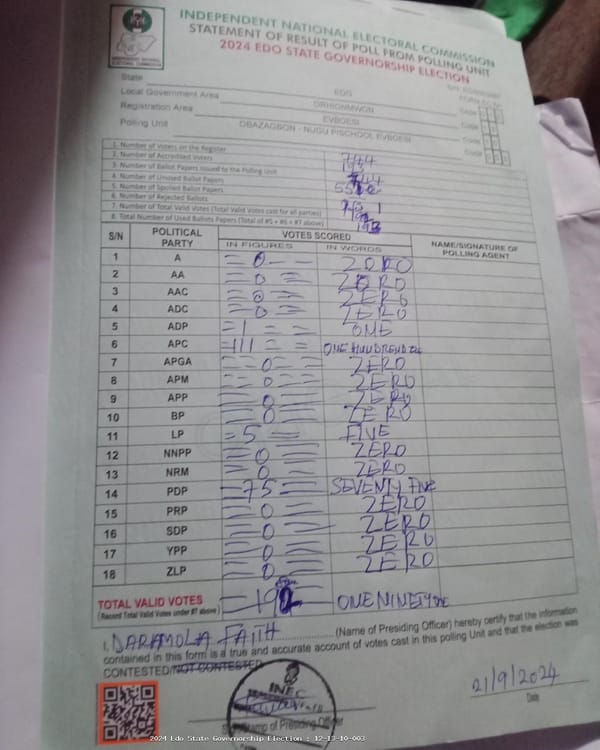 INDEPENDENT NATIONAL ELECTORAL COMMISSION
STATEMENT OF RESULT OF POLL FROM POLLING UNIT
2024 EDO STATE GOVERNORSHIP ELECTION
State EDO Code
Local Government Area ORHIONMWON Code
Registration Area EVBOESI Code
Polling Unit OBAZAGBON - NUGU PISCHOOL EVBOESI Code
1. Number of Voters on the Register 744
2. Number of Accredited Voters
3. Number of Ballot Papers Issued to the Polling Unit
4. Number of Unused Ballot Papers
5. Number of Spoiled Ballot Papers
6. Number of Rejected Ballots
7. Number of Total Valid Votes (Total Valid Votes cast for all parties)
8. Total Number of Used Ballots Papers (Total of #5 + #6 + #7 above)
S/N POLITICAL PARTY VOTES SCORED NAME/SIGNATURE OF POLLING AGENT
IN FIGURES IN WORDS
1 A 0 ZERO
2 AA 0 ZERO
3 AAC 0 ZERO
4 ADC 0 ZERO
5 ADP 1 ONE
6 APC 111 ONE HUNDREND
7 APGA 0 ZERO
8 APM 0 ZERO
9 APP 0 ZERO
10 BP 0 ZERO
11 LP 5 FIVE
12 NNPP 0 ZERO
13 NRM 0 ZERO
14 PDP 75 SEVENTY FIVE
15 PRP 0 ZERO
16 SDP 0 ZERO
17 YPP 0 ZERO
18 ZLP 0 ZERO
TOTAL VALID VOTES ONE NINETY
(Record Total Valid Votes under #7 above)
I, DARAMOLA FAITH (Name of Presiding Officer) hereby certify that the information
contained in this form is a true and accurate account of votes cast in this polling Unit and that the election was
CONTESTED/NOT CONTESTED
INEC
21/9/2024
Date
of Presiding Officer
2024 Edo State Governorship Election : 12-13-10-003